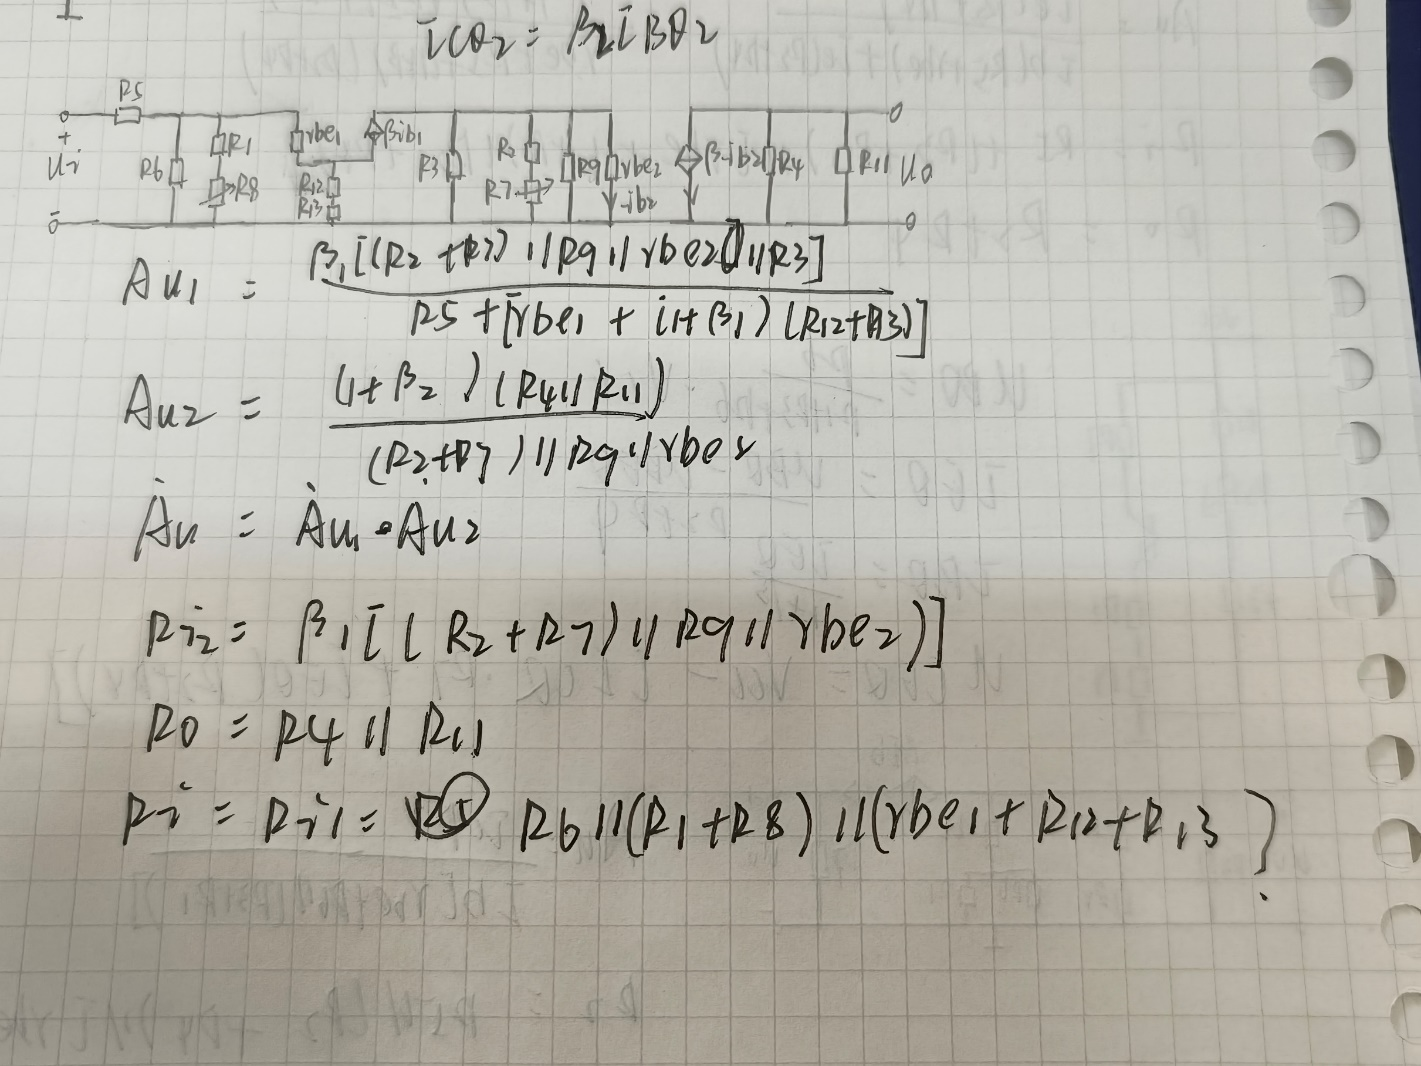 ICQ2 = β2IBQ2
R5
+ Ui -
R6
R1
R8
rbe1
R12
R13
βib1
R3
R2
R7
R9
rbe2
ib2
βib2
R4
R11
Uo
Au1 = β1[(R2+R7)//R9//rbe2//R3] / R5+[rbe1+(1+β1)(R12+R13)]
Au2 = (1+β2)(R4//R11) / (R2+R7)//R9//rbe2
Ȧu = Ȧu1·Ȧu2
Ri2 = β1[(R2+R7)//R9//rbe2)]
R0 = R4//R11
Ri = Ri1 = R5 R6//(R1+R8)//(rbe1+R12+R13 ?